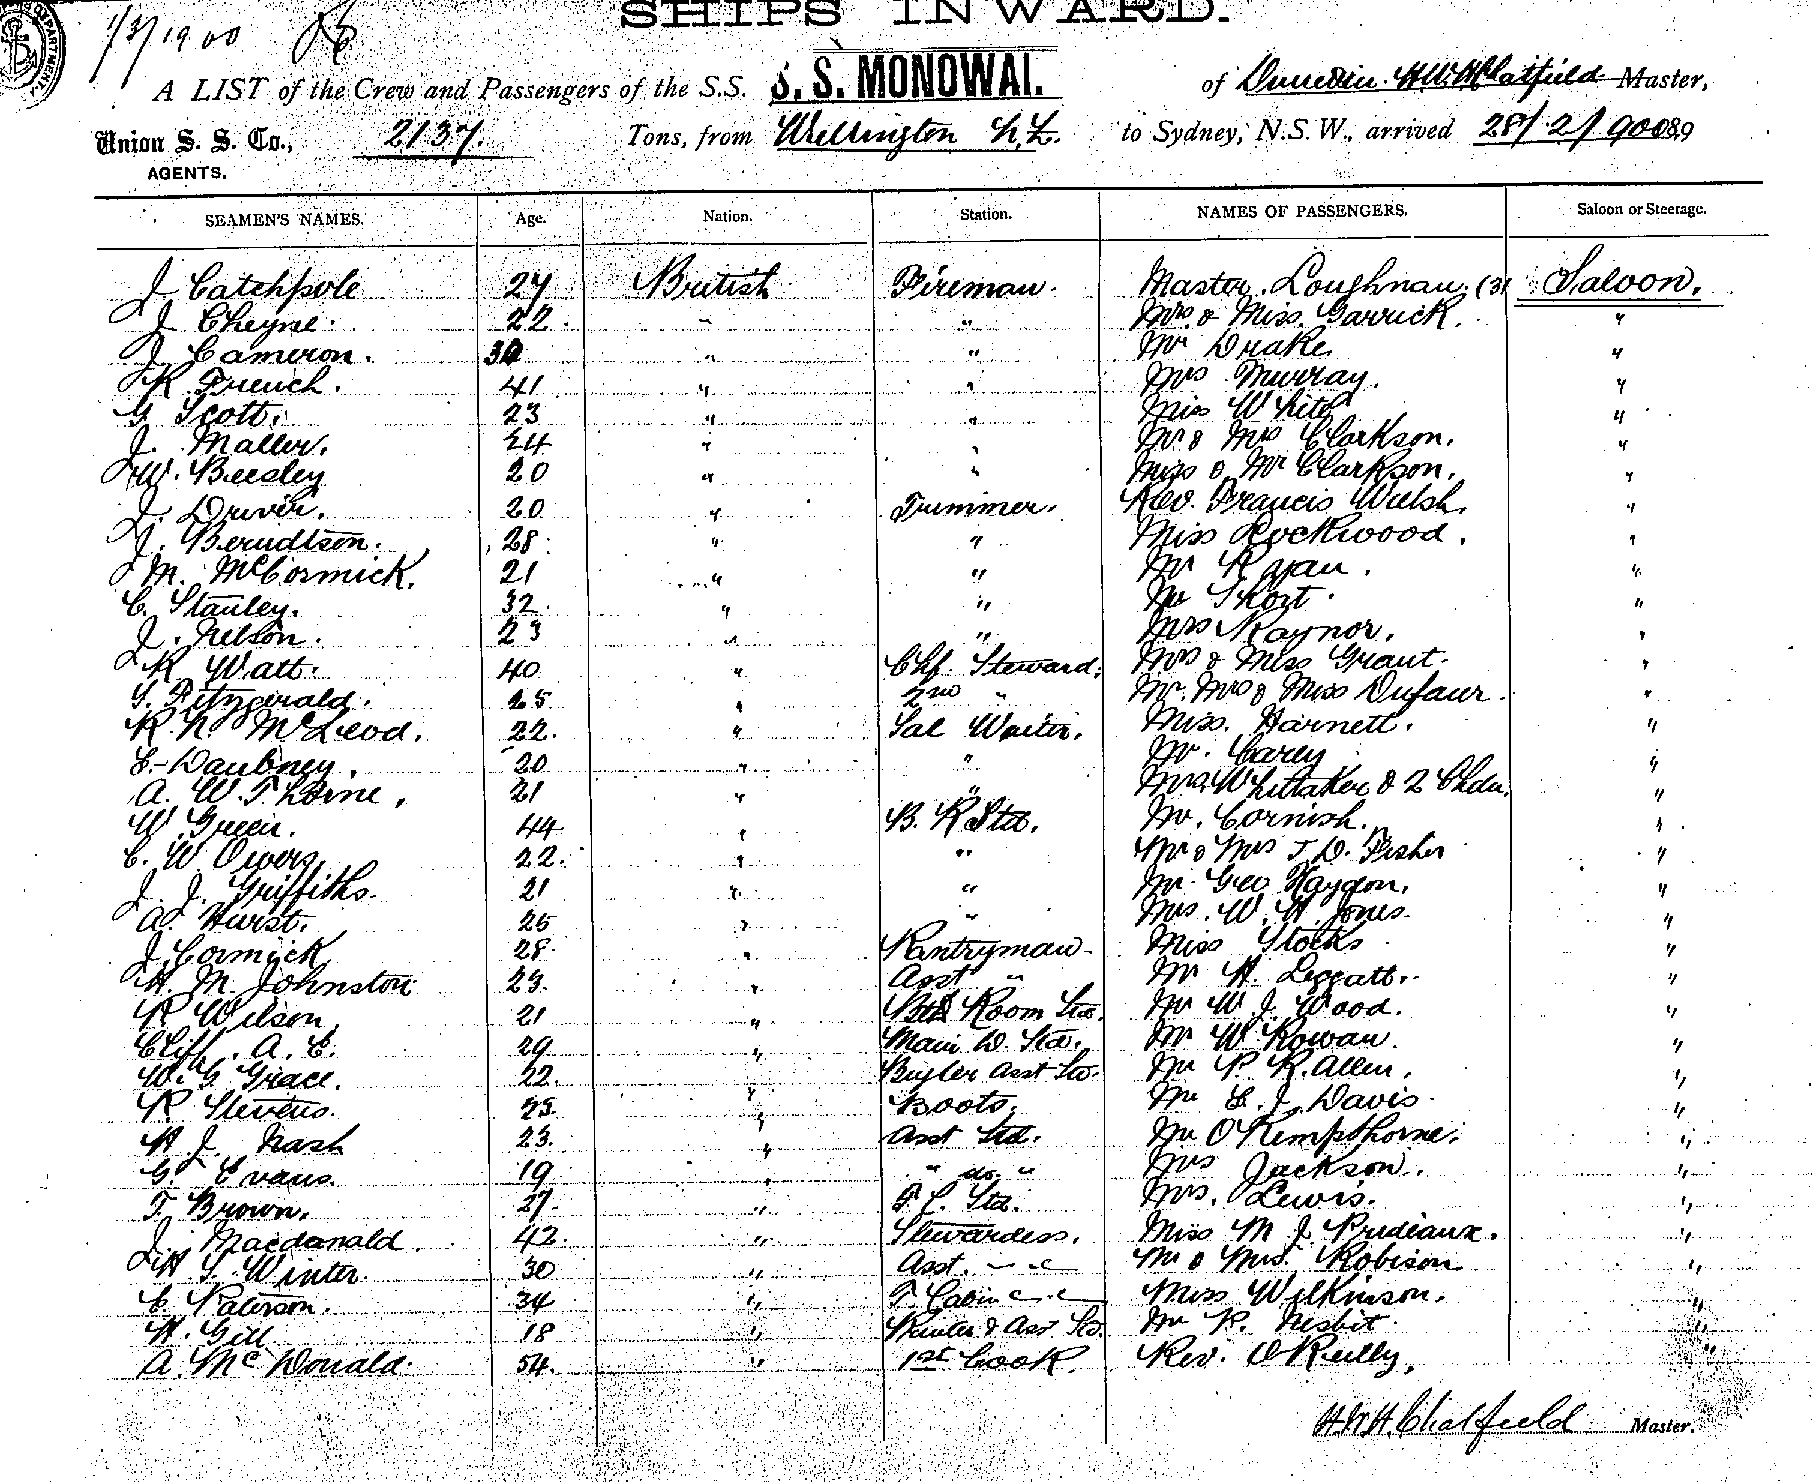 SHIPS INWARD.
1/3/1900
A LIST of the Crew and Passengers of the S.S. S. S. MONOWAI. of Dunedin H.W.H. Chatfield Master,
Union S. S. Co., 2137. Tons, from Wellington N.Z. to Sydney, N.S.W., arrived 28/2/900
AGENTS.
SEAMEN'S NAMES. Age. Nation. Station. NAMES OF PASSENGERS. Saloon or Steerage.
J Catchpole 27 British Fireman. Master. Loughnan. (3) Saloon.
J Cheyne. 22. " " Mrs. & Miss. Garrick. "
J Cameron. 30 " " Mr Drake "
R French. 41 " " Mrs Murray. "
G Scott. 23 " " Miss White "
J. Maller. 24 " " Mr & Mrs Clarkson. "
W. Beesley 20 " " Miss & Mr Clarkson. "
J. Driver. 20 " Trimmer. Rev. Francis Walsh. "
J. Berndtson. 28. " " Miss Rockwood. "
M. McCormick. 21 " " Mr Ryan. "
C. Stanley. 32. " " Mr Short. "
J. Nelson. 23 " " Mrs Raynor. "
R Watt. 40 " Chf. Steward. Mrs & Miss Grant. "
Fitzgerald. 25 " 2nd " Mr. Mrs & Miss Dufaur. "
R. N McLeod. 22. " Sal Waiter. Miss. Harnett. "
C. Daubney. 20 " " Mr. Carey "
A. W. Thorne. 21 " " Mrs. Whittaker & 2 Chdn. "
W. Green. 44 " B. R Std. Mr. Cornish. "
C. W Owers 22. " " Mr & Mrs T. D. Fisher "
J. J. Griffiths. 21 " " Mr. Geo Haydon. "
A. Hurst. 25 " " Mrs. W. H. Jones. "
J. Cormick 28. " Pantryman. Miss Stocks "
H. M. Johnston 23. " Asst " Mr H. Leggatt. "
R Wilson 21 " Room Std. Mr W. J. Wood. "
Cliff. A. E. 29 " Main D. Std. Mr W. Rowan. "
W. G Grace. 22. " Bugler Asst Std. Mr P. R. Allen. "
R Stevens. 23. " Boots. Mr C. J. Davis. "
H J. Nash 23. " Asst Std. Mr O Kempthorne. "
G. Evans. 19 " " do. " Mrs Jackson. "
T. Brown. 27. " F. C. Std. Mrs. Lewis. "
J. Macdonald. 42. " Stewardess. Miss M J. Prideaux. "
H S. Winter. 30 " Asst. " Mr & Mrs. Robison "
C. Paterson. 34 " F. Cabin " Miss Wilkinson. "
H. Gill 18 " Printer & Asst Std. Mr R. Nesbit. "
A. McDonald. 54. " 1st Cook. Rev. O'Reilly. "
H.W.H. Chatfield Master.